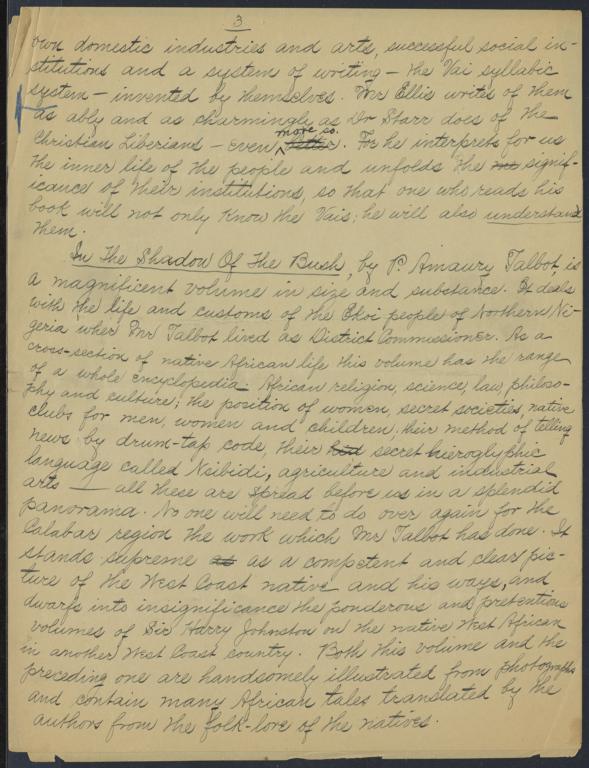 3
own domestic industries and arts, successful social in-
stitutions and a system of writing — the Vai syllabic
system — invented by themselves. Mr Ellis writes of them
as ably and as charmingly as Dr Starr does of the
Christian Liberians — even more so. For he interprets for us
the inner life of the people and unfolds the signif-
icance of their institutions, so that one who reads his
book will not only know the Vais; he will also understand
them.
In The Shadow Of The Bush, by P. Amaury Talbot, is
a magnificent volume in size and substance. It deals
with the life and customs of the Ekoi people of Northern Ni-
geria wher Mr Talbot lived as District Commissioner. As a
cross-section of native African life this volume has the range
of a whole encyclopedia. African religion, science, law, philoso-
phy and culture; the position of women, secret societies, native
clubs for men, women and children, their method of telling
news by drum-tap code, their secret hieroglyphic
language called Nsibidi, agriculture and industrial
arts — all these are spread before us in a splendid
panorama. No one will need to do over again for the
Calabar region the work which Mr Talbot has done. It
stands supreme as a competent and clear pic-
ture of the West Coast native and his ways, and
dwarfs into insignificance the ponderous and pretentious
volumes of Sir Harry Johnston on the native West African
in another West Coast country. Both this volume and the
preceding one are handsomely illustrated from photographs
and contain many African tales translated by the
authors from the folk-lore of the natives.